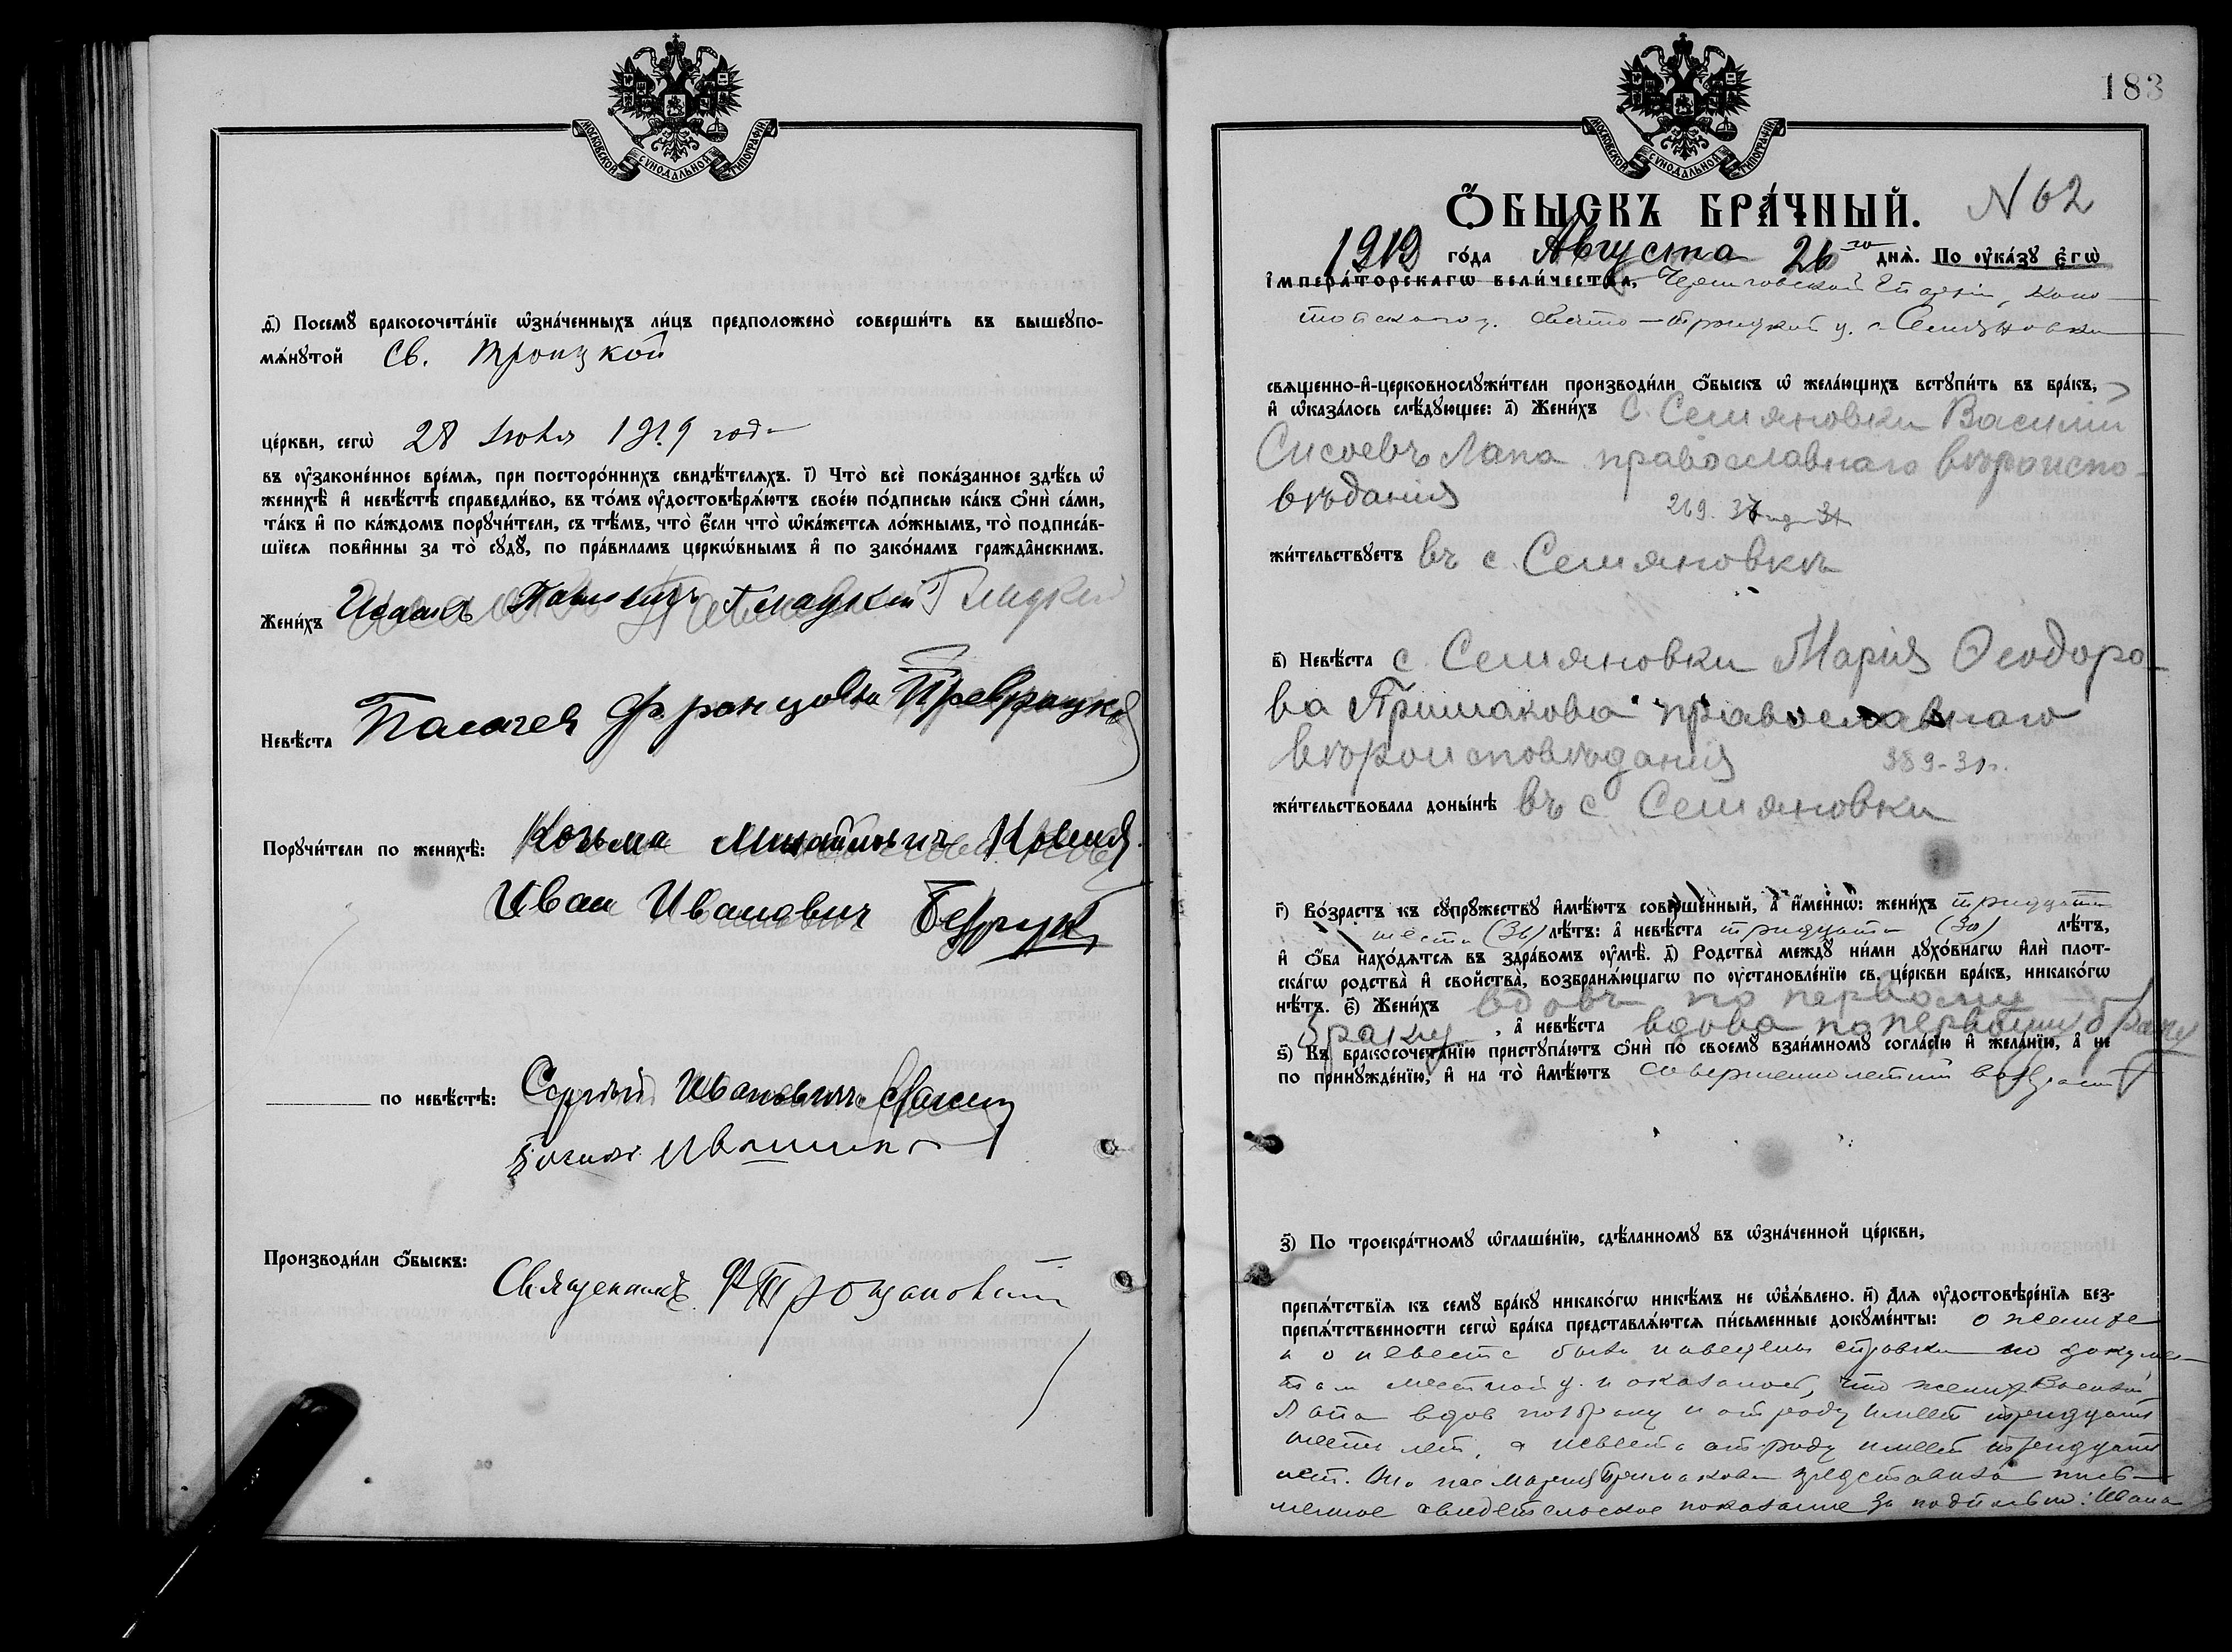 МОСКОВСКОЙ СѴНОДАЛЬНОЙ ТИПОГРАФІИ
д҃) Посемꙋ̀ бракосочета́нїе ѡ҆зна́ченныхъ ли́цъ предположено̀ соверши́ть въ вышеꙋпо-
мѧ́нꙋтой Св. Троицкой
це́ркви, сегѡ̀ 28 Іюля 1919 года
въ ᲂу҆законе́нное вре́мѧ, при посторо́ннихъ свидѣ́телѧхъ. і҃) Что̀ всѐ пока́занное здѣ́сь ѡ҆
женихѣ̀ и҆ невѣ́стѣ справедли́во, въ то́мъ ᲂу҆достовѣрѧ́ютъ свое́ю по́дписью ка́къ ѻ҆нѝ са́ми,
та́къ и҆ по ка́ждомъ порꙋчи́тели, съ тѣ́мъ, что̀ є҆́сли что̀ ѡ҆ка́жетсѧ ло́жнымъ, то̀ подписа́в-
шїесѧ пови́нны за то̀ сꙋдꙋ̀, по пра́виламъ церкѡ́внымъ и҆ по зако́намъ гражда̂нскимъ.
Жени́хъ Гладкій
Невѣ́ста Францовна
Порꙋчи́тели по женихѣ̀: Козьма
Иван Иванович
по невѣ́стѣ: Сергѣй Ивановичъ
Производи́ли ѻ҆́быскъ:
Священникъ
183
МОСКОВСКОЙ СѴНОДАЛЬНОЙ ТИПОГРАФІИ
Ѻ҆́БЫСКЪ БРА́ЧНЫЙ. N 62
1919 го́да Августа 26го днѧ̀. По ᲂу҆ка́зꙋ є҆гѡ̀
і҆мпера́торскагѡ вели́чества, Черниговской Епархіи, Коно-
топского у. Свято-Троицкой ц. с. Семяновки
свѧщенно-и҆-церковнослꙋжи́тели производи́ли ѻ҆́быскъ ѡ҆ жела́ющихъ встꙋпи́ть въ бра́къ,
и҆ ѡ҆каза́лось слѣ́дꙋющее: а҃) Жени́хъ с. Семяновки Василій
Сисоевъ Лапа православнаго вѣроиспо-
вѣданія
жи́тельствꙋетъ въ с. Семяновкѣ
в҃) Невѣ́ста с. Семяновки Марія Ѳеодоро-
ва Примакова православнаго
вѣроисповѣданія
жи́тельствовала доны́нѣ въ с Семяновки
г҃) Во́зрастъ къ сꙋпрꙋ́жествꙋ и҆мѣ́ютъ соверше́нный, а҆ и҆́меннѡ: жени́хъ тридцати
шести (36) лѣ́тъ: а҆ невѣ́ста тридцати (30) лѣ́тъ,
и҆ ѻ҆́ба нахо́дѧтсѧ въ здра́вомъ ᲂу҆мѣ̀. д҃) Родства̀ междꙋ̀ ни́ми дꙋхо́внагѡ и҆лѝ плот-
ска́гѡ родства̀ и҆ свойства̀, возбранѧ́ющагѡ по ᲂу҆становле́нїю св. це́ркви бра́къ, никако́гѡ
нѣ́тъ. є҃) Жени́хъ вдовъ по первому
браку, а҆ невѣ́ста вдова по первому браку
ѕ҃) Къ бракосочета́нїю пристꙋпа́ютъ ѻ҆нѝ по своемꙋ̀ взаи́мномꙋ согла́сїю и҆ жела́нїю, а҆ не
по принꙋжде́нїю, и҆ на то̀ и҆мѣ́ютъ совершеннолетний возраст
з҃) По троекра́тномꙋ ѡ҆глаше́нїю, сдѣ́ланномꙋ въ ѡ҆зна́ченной це́ркви,
препѧ́тствїѧ къ семꙋ̀ бра́кꙋ никако́гѡ никѣ́мъ не ѡ҆бъѧ́влено. и҃) Длѧ ᲂу҆достовѣре́нїѧ без-
препѧ́тственности сегѡ̀ бра́ка представлѧ́ютсѧ пи́сьменные докꙋме́нты: о женихе
и о невесте были наведены справки по докумен-
там местной ц. и оказалось, что жених Василий
Лапа вдов по I браку и от роду имеет тридцать
шесть лет, а невеста от роду имеет тридцать
лет. Она же Мария Примакова представила пись-
менное свидетельское показание за подписью: Ивана